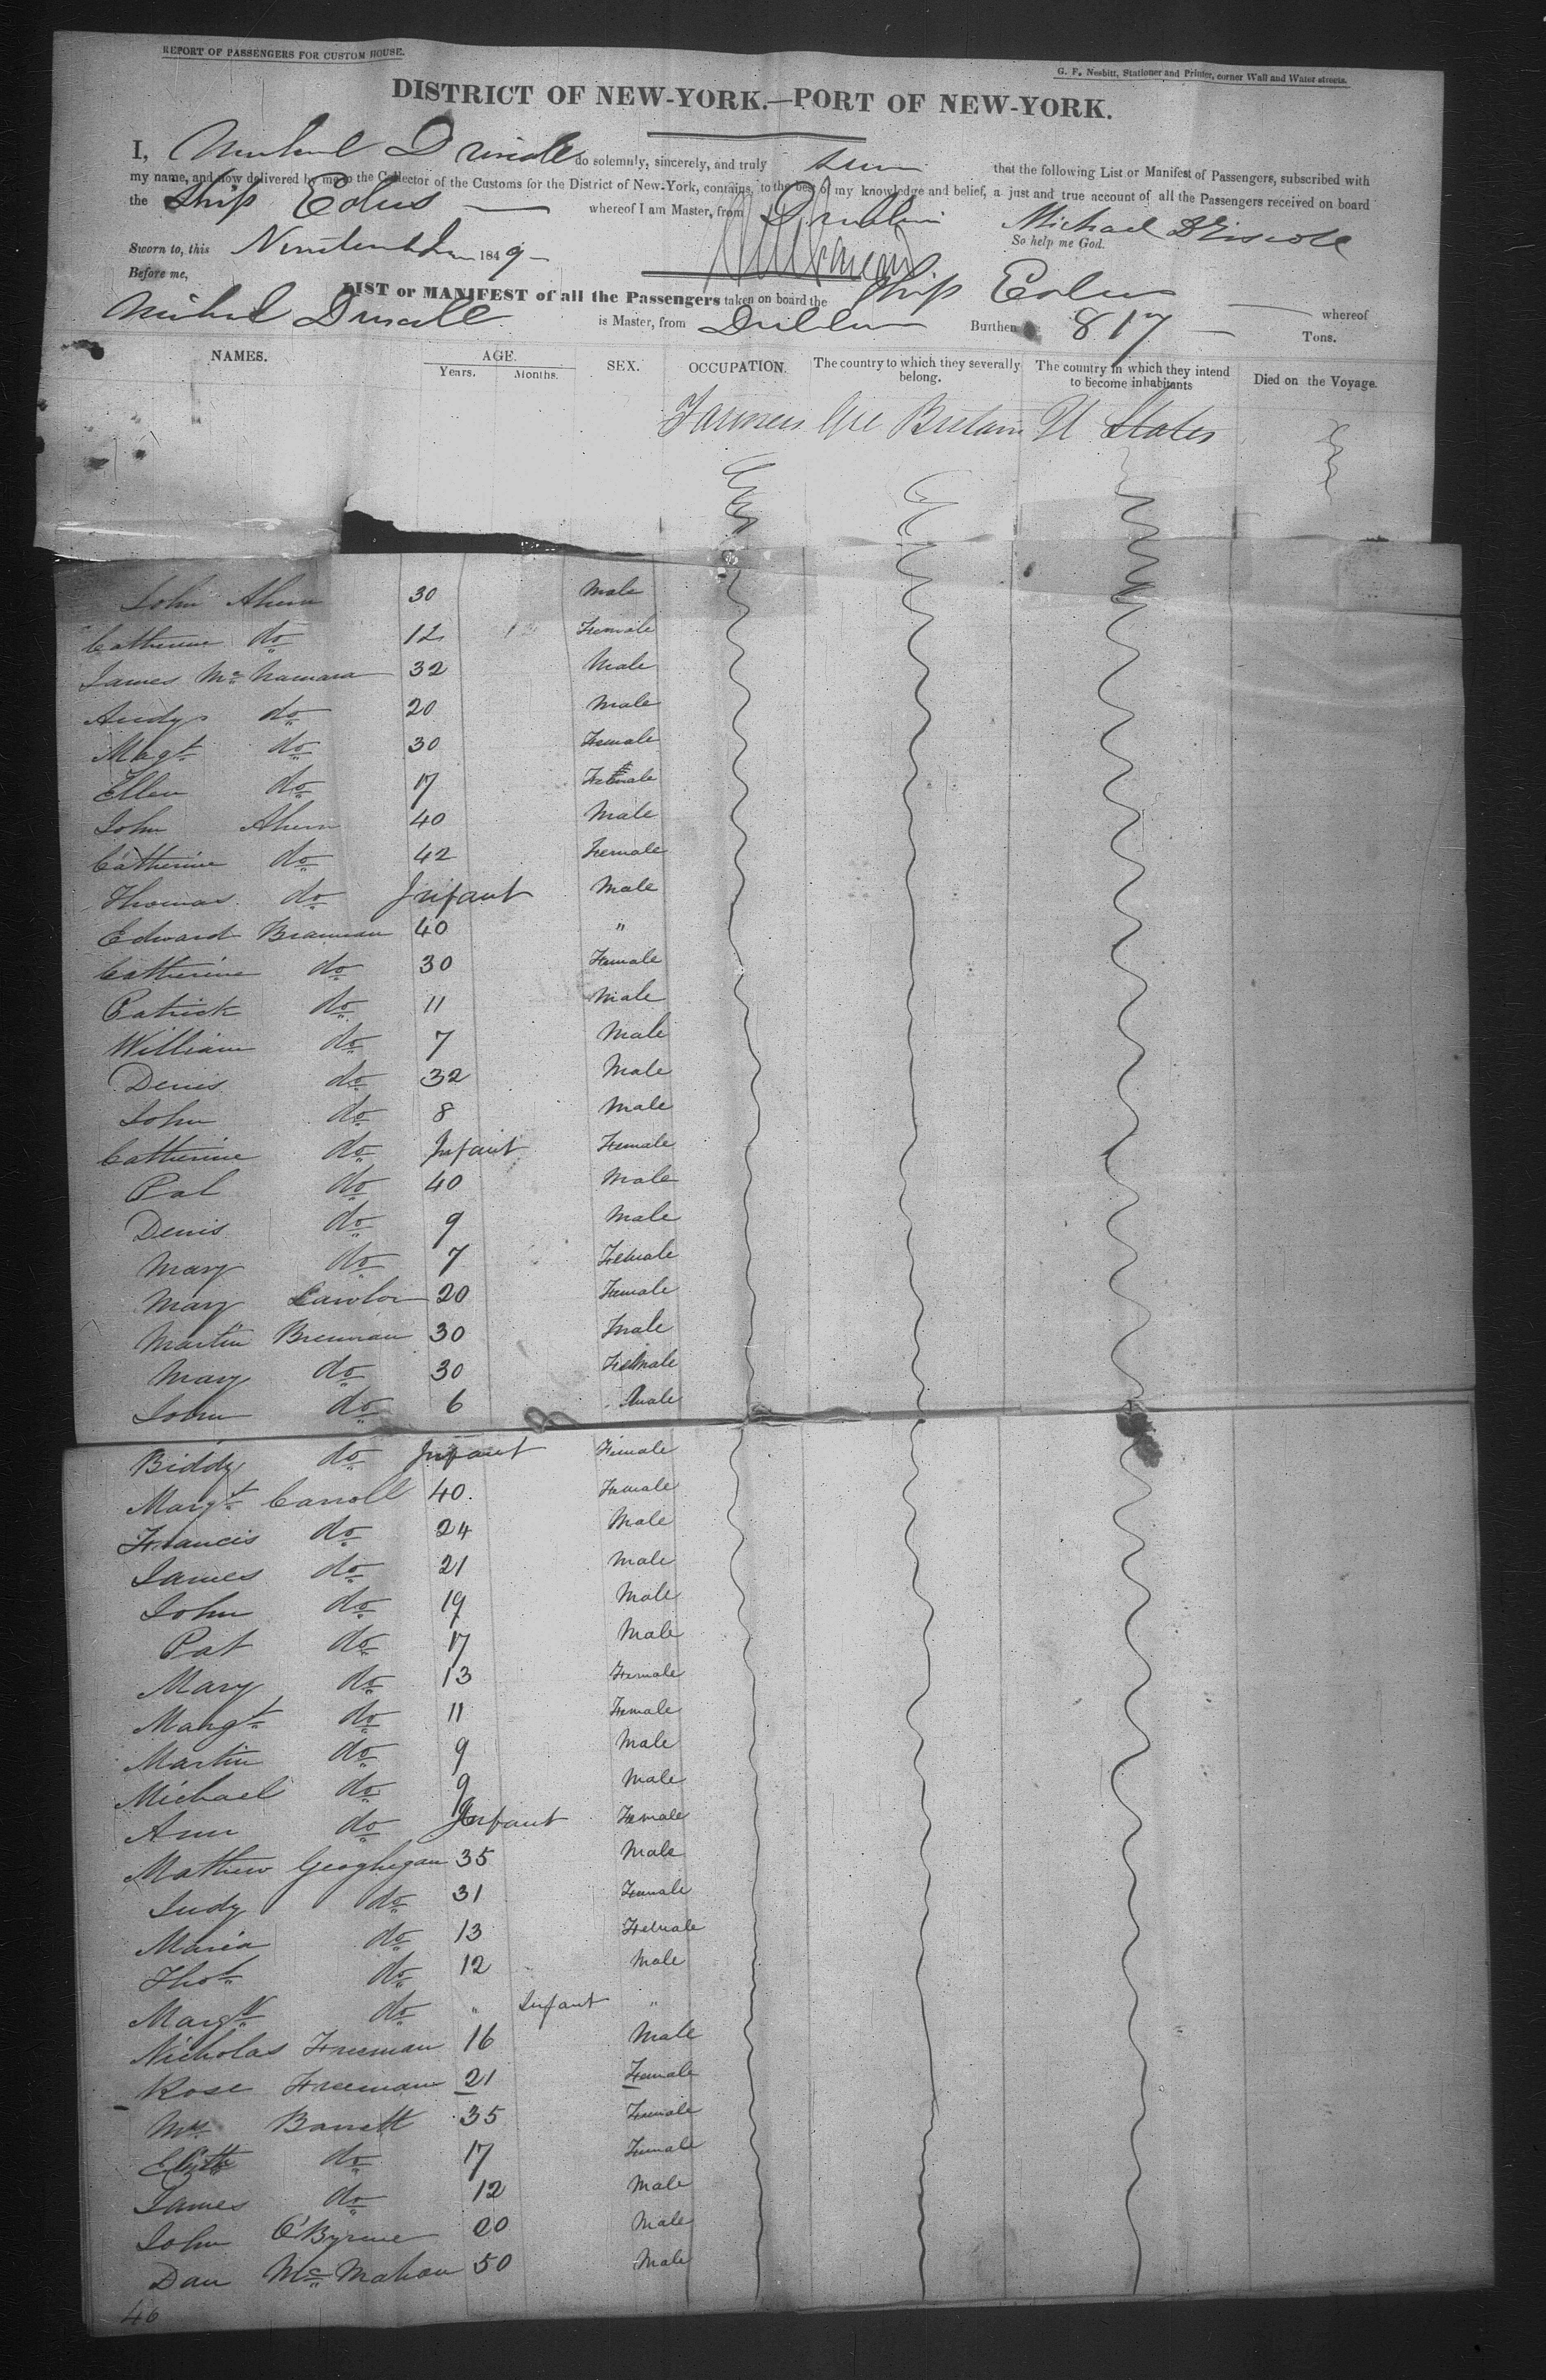 REPORT OF PASSENGERS FOR CUSTOM HOUSE.
G. F. Nesbitt, Stationer and Printer, corner Wall and Water streets.
DISTRICT OF NEW-YORK.—PORT OF NEW-YORK.
I, Michael Driscoll do solemnly, sincerely, and truly that the following List or Manifest of Passengers, subscribed with
my name, and now delivered by me to the Collector of the Customs for the District of New-York, contains, to the best of my knowledge and belief, a just and true account of all the Passengers received on board
the Ship Eolus whereof I am Master, from Dublin Michael Driscole
Sworn to, this 1849 So help me God.
Before me,
LIST or MANIFEST of all the Passengers taken on board the Ship Eolus whereof
Michael Driscoll is Master, from Dublin Burthen 817 Tons.
NAMES. AGE. SEX. OCCUPATION. The country to which they severally belong. The country in which they intend to become inhabitants Died on the Voyage.
Years. Months.
Farmers Gre Britain U States
John Ahern 30 Male
Catherine do 12 Female
James Mc Namara 32 Male
Andy do 20 Male
Magt do 30 Female
Ellen do 17 Female
John Ahern 40 Male
Catherine do 42 Female
Thomas do Infant Male
Edward Brannan 40 "
Catherine do 30 Female
Patrick do 11 Male
William do 7 Male
Denis do 32 Male
John do 8 Male
Catherine do Infant Female
Pat do 40 Male
Denis do 9 Male
Mary do 7 Female
Mary Lawlor 20 Female
Martin Brennan 30 Male
Mary do 30 Female
John do 6 Male
Biddy do Infant Female
Margt Carroll 40 Female
Francis do 24 Male
James do 21 Male
John do 19 Male
Pat do 17 Male
Mary do 13 Female
Margt do 11 Female
Martin do 9 Male
Michael do 9 Male
Ann do Infant Female
Mathew Geoghegan 35 Male
Judy do 31 Female
Maria do 13 Female
Thos do 12 Male
Margt do " Infant "
Nicholas Freeman 16 Male
Rose Freeman 21 Female
Mrs Barrett 35 Female
do 17 Female
James do 12 Male
John O'Byrne 20 Male
Dan Mc Mahon 50 Male
46